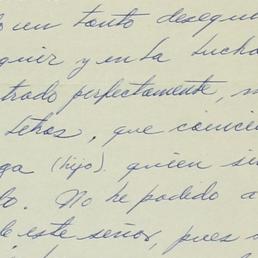 un tanto desequi
quir y en la lucha
trado perfectamente, m
que coincie
ga (hijo). quien si
lo. No he podido a
de este señor, pues